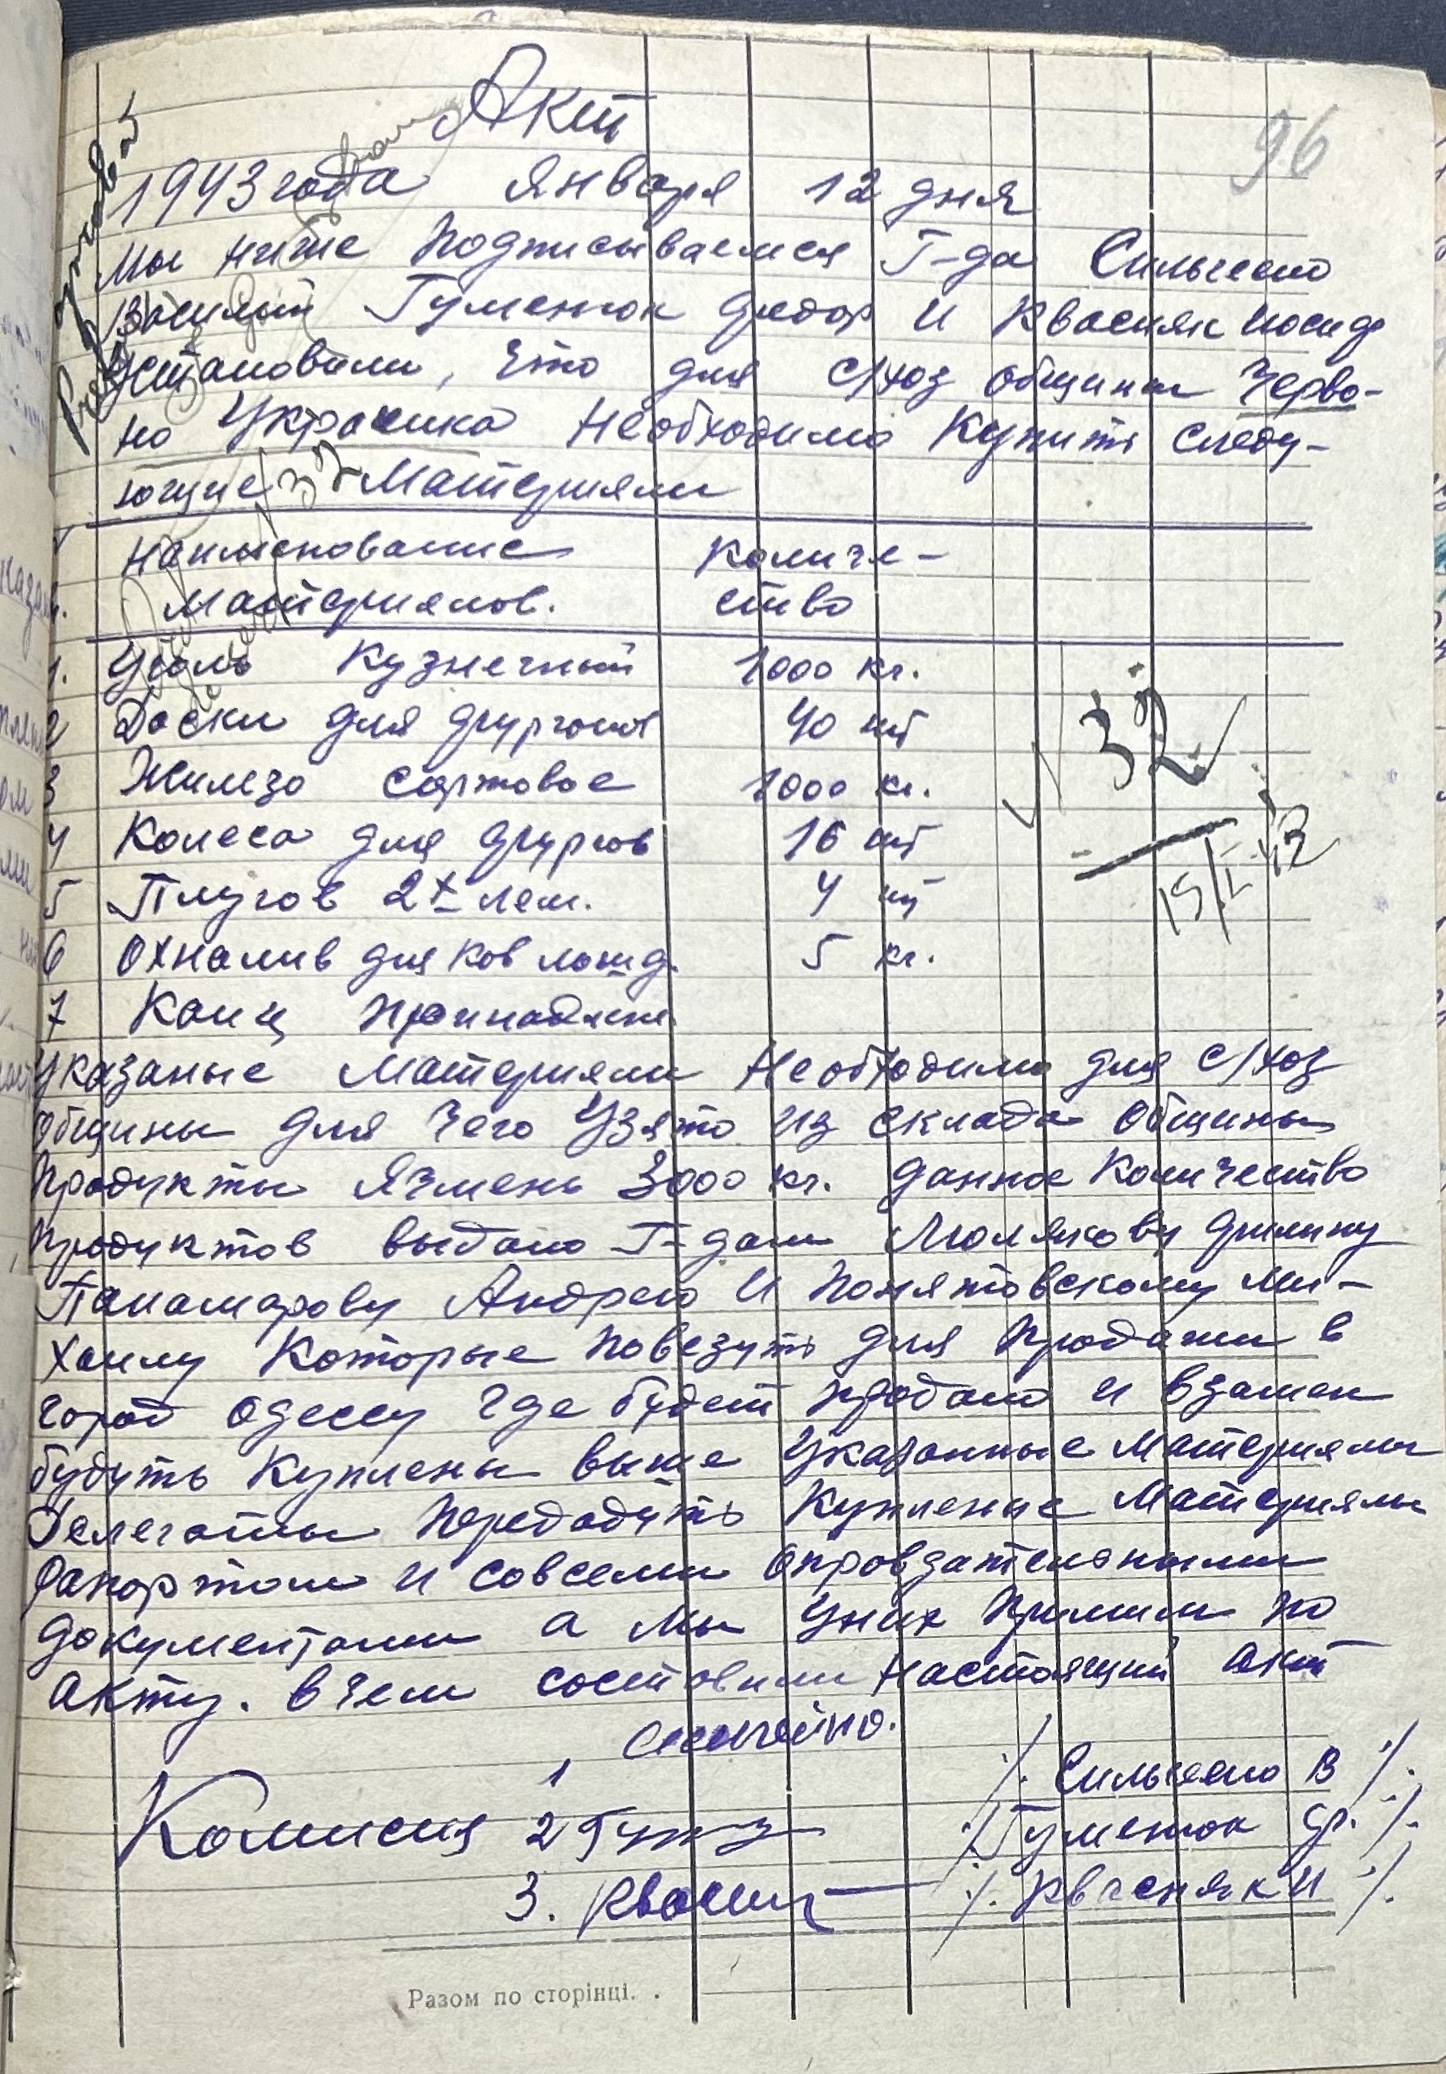 96
Акт
1943 года Января 12 дня
Мы ниже Подписываемся Г-да Сильченко
Гуменюк Федор и Квасняк Иосиф
Установили, что для с/хоз общины Черво-
но Украинка Необходимо Купить следу-
ющие Материялы
Наименование Количе-
Материялов. ство
1. Уголь Кузнечный 1000 кг.
2 Доски для фургонов 40 шт
3 Железо сортовое 1000 кг.
4 Колеса для фургов 16 шт
5 Плугов 2х лем. 4 шт
6 Охналив для ков лошад. 5 кг.
7 Канц Принадлеж
№ 32
15/I-43
Указаные Материялы Необходимо для с/хоз
общины для чего Узято из склада общины
Продукты Ячмень 3000 кг. данное Количество
Продуктов выдано Г-дам Филипу
Панамарову Андрею и Понятовскому Ми-
хаилу Которые Повезуть для Продажи в
город Одессу где будет продано и взамен
будуть Куплены выше Указанные Материялы
Делегаты Передадуть Купленые Материялы
рапортом и совсеми оправдательными
документами а мы Уних Примим по
акту. в чем составили Настоящий акт
Комисия 1 /. Сильченко В /.
2 /. Гуменюк Ф. /.
3. Квасн /. Квасняк И /.
Разом по сторінці.